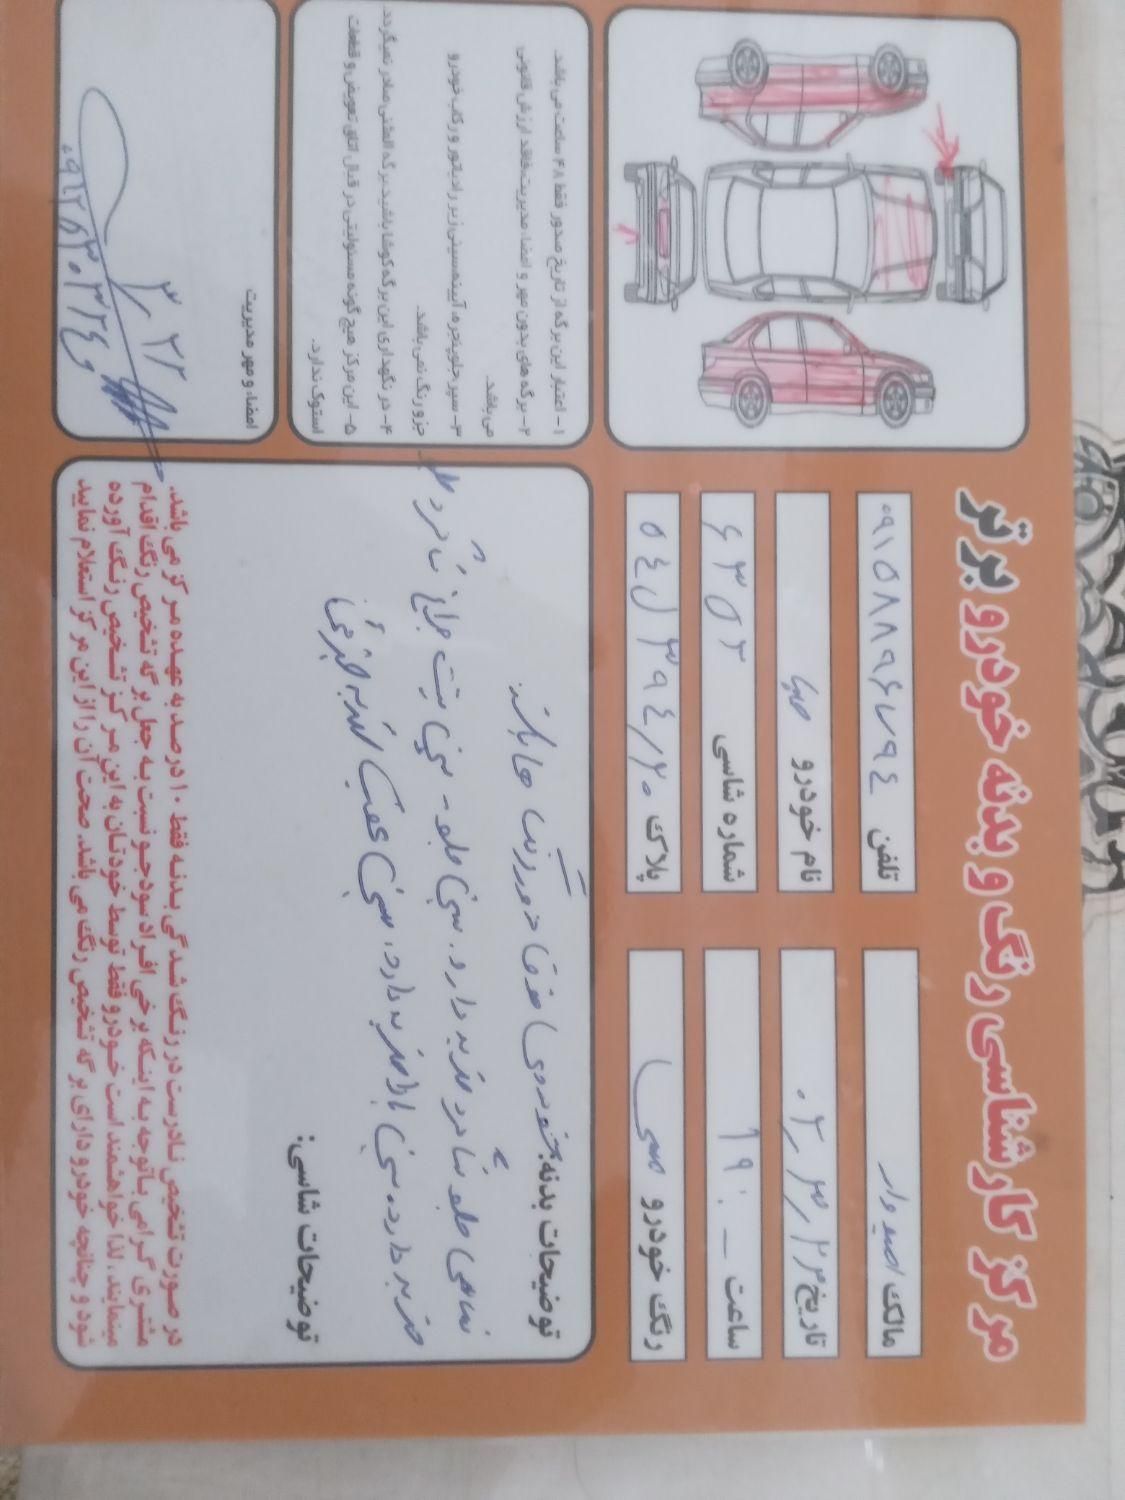 مرکز کارشناسی رنگ و بدنه خودرو برتر
مالک امیدوار
تلفن ۰۹۱۵۸۸۹۶۷۹۴
تاریخ ۰۲/۳/۲۲
نام خودرو
ساعت ۱۹:-
شماره شاسی ۶۳۵۲
رنگ خودرو
پلاک ۵۴ل۳۹۴/۲۰
توضیحات بدنه: خودروی فوق دور رنگ می باشد.
جلو ضربه دارد. سینی جلو - سینی
ضربه دارد. سینی ضربه دارد. سینی عقب
توضیحات شاسی:
در صورت تشخیص نادرست در رنگ شدگی بدنه فقط ۱۰ درصد به عهده مرکز می باشد.
مشتری گرامی با توجه به اینکه برخی افراد سودجو نسبت به جعل برگه تشخیص رنگ اقدام
مینمایند. لذا خواهشمند است خودرو فقط توسط خودتان به این مرکز تشخیص رنگ آورده
شود و چنانچه خودرو دارای برگه تشخیص رنگ می باشد. صحت آن را از این مرکز استعلام نمایید
۱- اعتبار این برگه از تاریخ صدور فقط ۴۸ ساعت می باشد.
۲- برگه های بدون مهر و امضاء مدیریت فاقد ارزش قانونی
می باشد.
۳- سپر جلو پنجره، آیینه سینی زیر رادیاتور و رکاب خودرو
جزو رنگ نمی باشد.
۴- در نگهداری این برگه کوشا باشید برگه المثنی صادر نمیگردد.
۵- این مرکز هیچ گونه مسئولیتی در قبال اتاق تعویض و قطعات
استوک ندارد.
امضاء و مهر مدیریت
۳۲۲